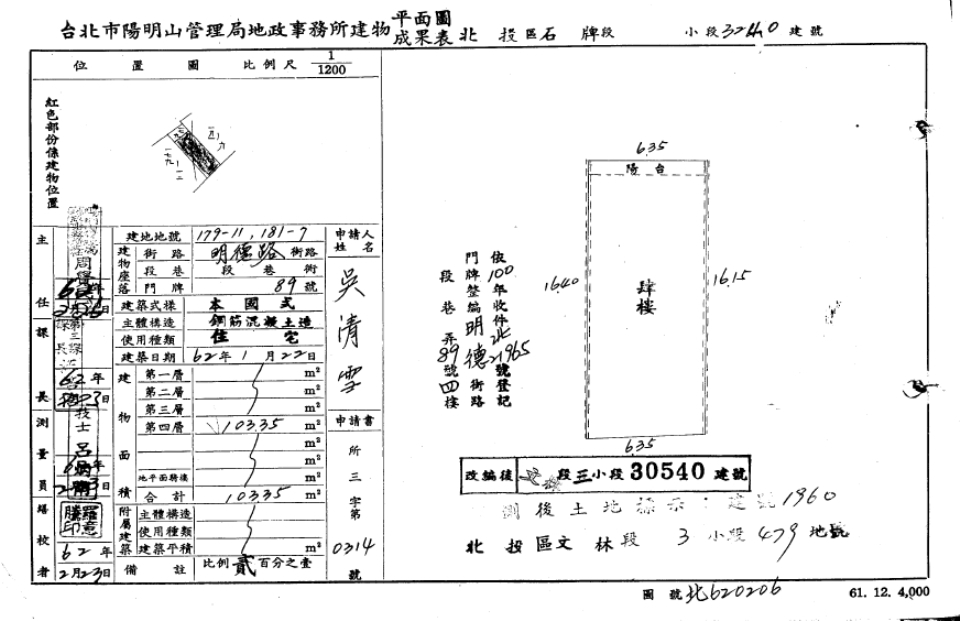 台北市陽明山管理局地政事務所建物平面圖成果表 北投區石牌段 小段32440建號
位置圖 比例尺 1/1200
紅色部份係建物位置
建地地號 179-11,181-7
建物座落
街路 明德路 街路
段巷 段巷街
門牌 89號
建築式樣 本國式
主體構造 鋼筋混凝土造
使用種類 住宅
建築日期 62年1月22日
建物面積
第一層 m²
第二層 m²
第三層 m²
第四層 103.35 m²
m²
m²
地平面騎樓 m²
合計 103.35 m²
附屬建築
主體構造
使用種類
建築平積 m²
備註 比例貳百分之壹
申請人姓名
吳清雪
申請書
所三字第0314號
主任
課長
測量員
繕校者
62年
62年
2月23日
技士
羅意騰印
635
陽台
1640
肆樓
1615
635
依100年收件北21965號登記
門牌整編明德街路
段巷弄89號四樓
改編後 段五小段30540建號
測後土地標示:建號1960
北投區文林段3小段479地號
圖號北620206
61. 12. 4,000